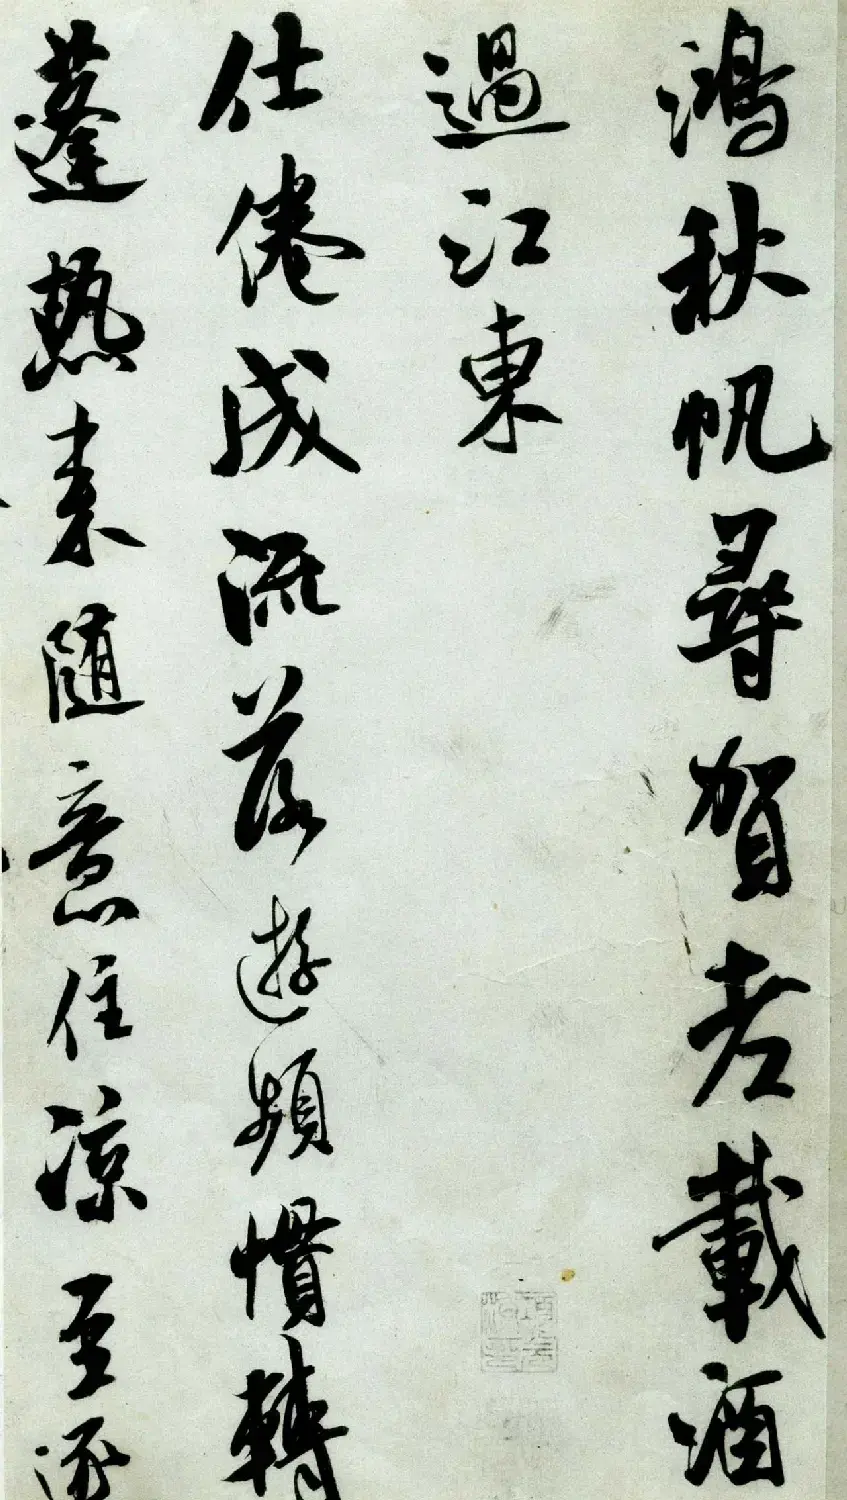 鴻秋帆尋賀老載酒
過江東
仕倦成流落遊頻慣轉
蓬熱来随意住涼至逐